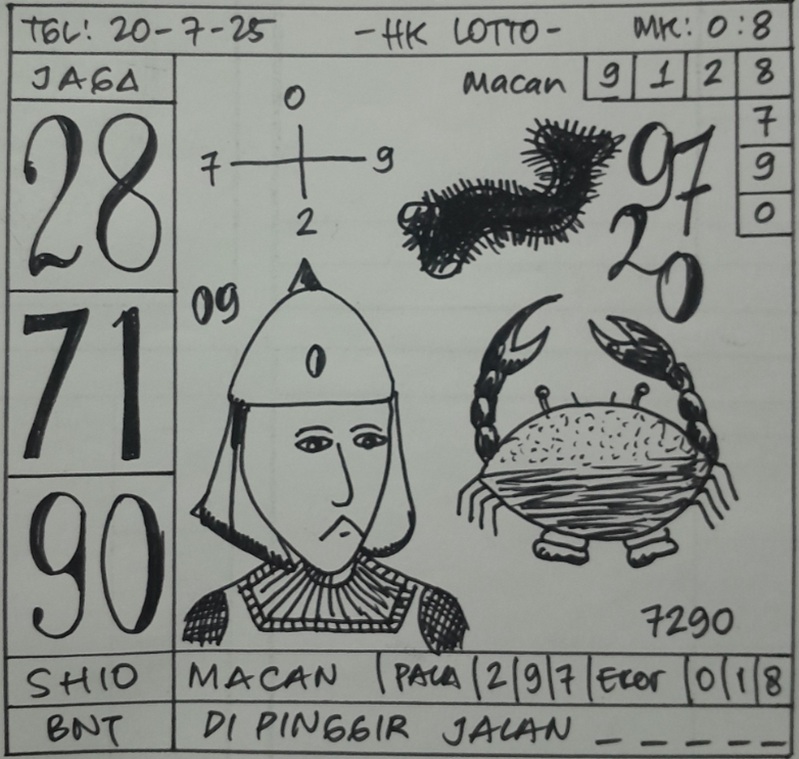 TGL: 20-7-25 -HK LOTTO- MK: 0:8
JAGA
Macan 9 1 2 8
7
9
0
28
0
7 9
2
97
20
09
0
71
90
7290
SHIO MACAN PALA 2 9 7 Ekor 0 1 8
BNT DI PINGGIR JALAN _ _ _ _ _